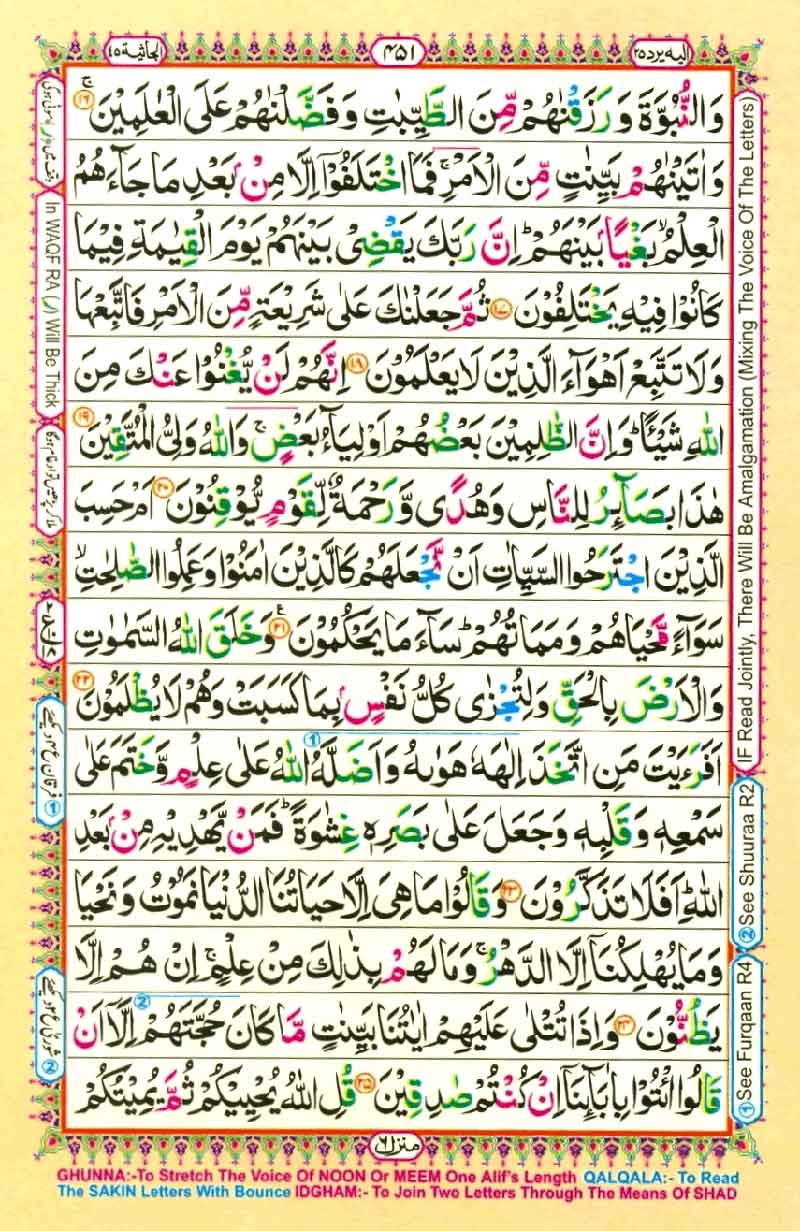 الجاثية ٤٥
٤٥١
اليه يرد ٢٥
وَالنُّبُوَّةَ وَرَزَقْنٰهُمْ مِّنَ الطَّيِّبٰتِ وَفَضَّلْنٰهُمْ عَلَى الْعٰلَمِيْنَ ۚ‏﴿۱۶﴾
وَاٰتَيْنٰهُمْ بَيِّنٰتٍ مِّنَ الْاَمْرِ ۚ فَمَا اخْتَلَفُوْۤا اِلَّا مِنْۢ بَعْدِ مَا جَآءَهُمُ
الْعِلْمُ ۙ بَغْيًاۢ بَيْنَهُمْ ؕ اِنَّ رَبَّكَ يَقْضِىْ بَيْنَهُمْ يَوْمَ الْقِيٰمَةِ فِيْمَا
كَانُوْا فِيْهِ يَخْتَلِفُوْنَ ﴿۱۷﴾ ثُمَّ جَعَلْنٰكَ عَلٰى شَرِيْعَةٍ مِّنَ الْاَمْرِ فَاتَّبِعْهَا
وَلَا تَتَّبِعْ اَهْوَآءَ الَّذِيْنَ لَا يَعْلَمُوْنَ ﴿۱۸﴾ اِنَّهُمْ لَنْ يُّغْنُوْا عَنْكَ مِنَ
اللّٰهِ شَيْـًٔا ؕ وَاِنَّ الظّٰلِمِيْنَ بَعْضُهُمْ اَوْلِيَآءُ بَعْضٍ ۚ وَاللّٰهُ وَلِىُّ الْمُتَّقِيْنَ ﴿۱۹﴾
هٰذَا بَصَآئِرُ لِلنَّاسِ وَهُدًى وَّرَحْمَةٌ لِّقَوْمٍ يُّوْقِنُوْنَ ﴿۲۰﴾ اَمْ حَسِبَ
الَّذِيْنَ اجْتَرَحُوا السَّيِّاٰتِ اَنْ نَّجْعَلَهُمْ كَالَّذِيْنَ اٰمَنُوْا وَعَمِلُوا الصّٰلِحٰتِ ۙ
سَوَآءً مَّحْيَاهُمْ وَمَمَاتُهُمْ ؕ سَآءَ مَا يَحْكُمُوْنَ ﴿۲۱﴾ وَخَلَقَ اللّٰهُ السَّمٰوٰتِ
وَالْاَرْضَ بِالْحَقِّ وَلِتُجْزٰى كُلُّ نَفْسٍۢ بِمَا كَسَبَتْ وَهُمْ لَا يُظْلَمُوْنَ ﴿۲۲﴾
اَفَرَءَيْتَ مَنِ اتَّخَذَ اِلٰهَهٗ هَوٰٮهُ وَاَضَلَّهُ اللّٰهُ عَلٰى عِلْمٍ وَّخَتَمَ عَلٰى
سَمْعِهٖ وَقَلْبِهٖ وَجَعَلَ عَلٰى بَصَرِهٖ غِشٰوَةً ؕ فَمَنْ يَّهْدِيْهِ مِنْۢ بَعْدِ
اللّٰهِ ؕ اَفَلَا تَذَكَّرُوْنَ ﴿۲۳﴾ وَقَالُوْا مَا هِىَ اِلَّا حَيَاتُنَا الدُّنْيَا نَمُوْتُ وَنَحْيَا
وَمَا يُهْلِكُنَاۤ اِلَّا الدَّهْرُ ۚ وَمَا لَهُمْ بِذٰلِكَ مِنْ عِلْمٍ ۚ اِنْ هُمْ اِلَّا
يَظُنُّوْنَ ﴿۲۴﴾ وَاِذَا تُتْلٰى عَلَيْهِمْ اٰيٰتُنَا بَيِّنٰتٍ مَّا كَانَ حُجَّتَهُمْ اِلَّاۤ اَنْ
قَالُوا ائْتُوْا بِاٰبَآئِنَاۤ اِنْ كُنْتُمْ صٰدِقِيْنَ ﴿۲۵﴾ قُلِ اللّٰهُ يُحْيِيْكُمْ ثُمَّ يُمِيْتُكُمْ
منزل ٦
In WAQF RA (ر) Will Be Thick
IF Read Jointly, There Will Be Amalgamation (Mixing The Voice Of The Letters)
② See Shuuraa R2
① See Furqaan R4
GHUNNA:-To Stretch The Voice Of NOON Or MEEM One Alif's Length QALQALA:- To Read
The SAKIN Letters With Bounce IDGHAM:- To Join Two Letters Through The Means Of SHAD